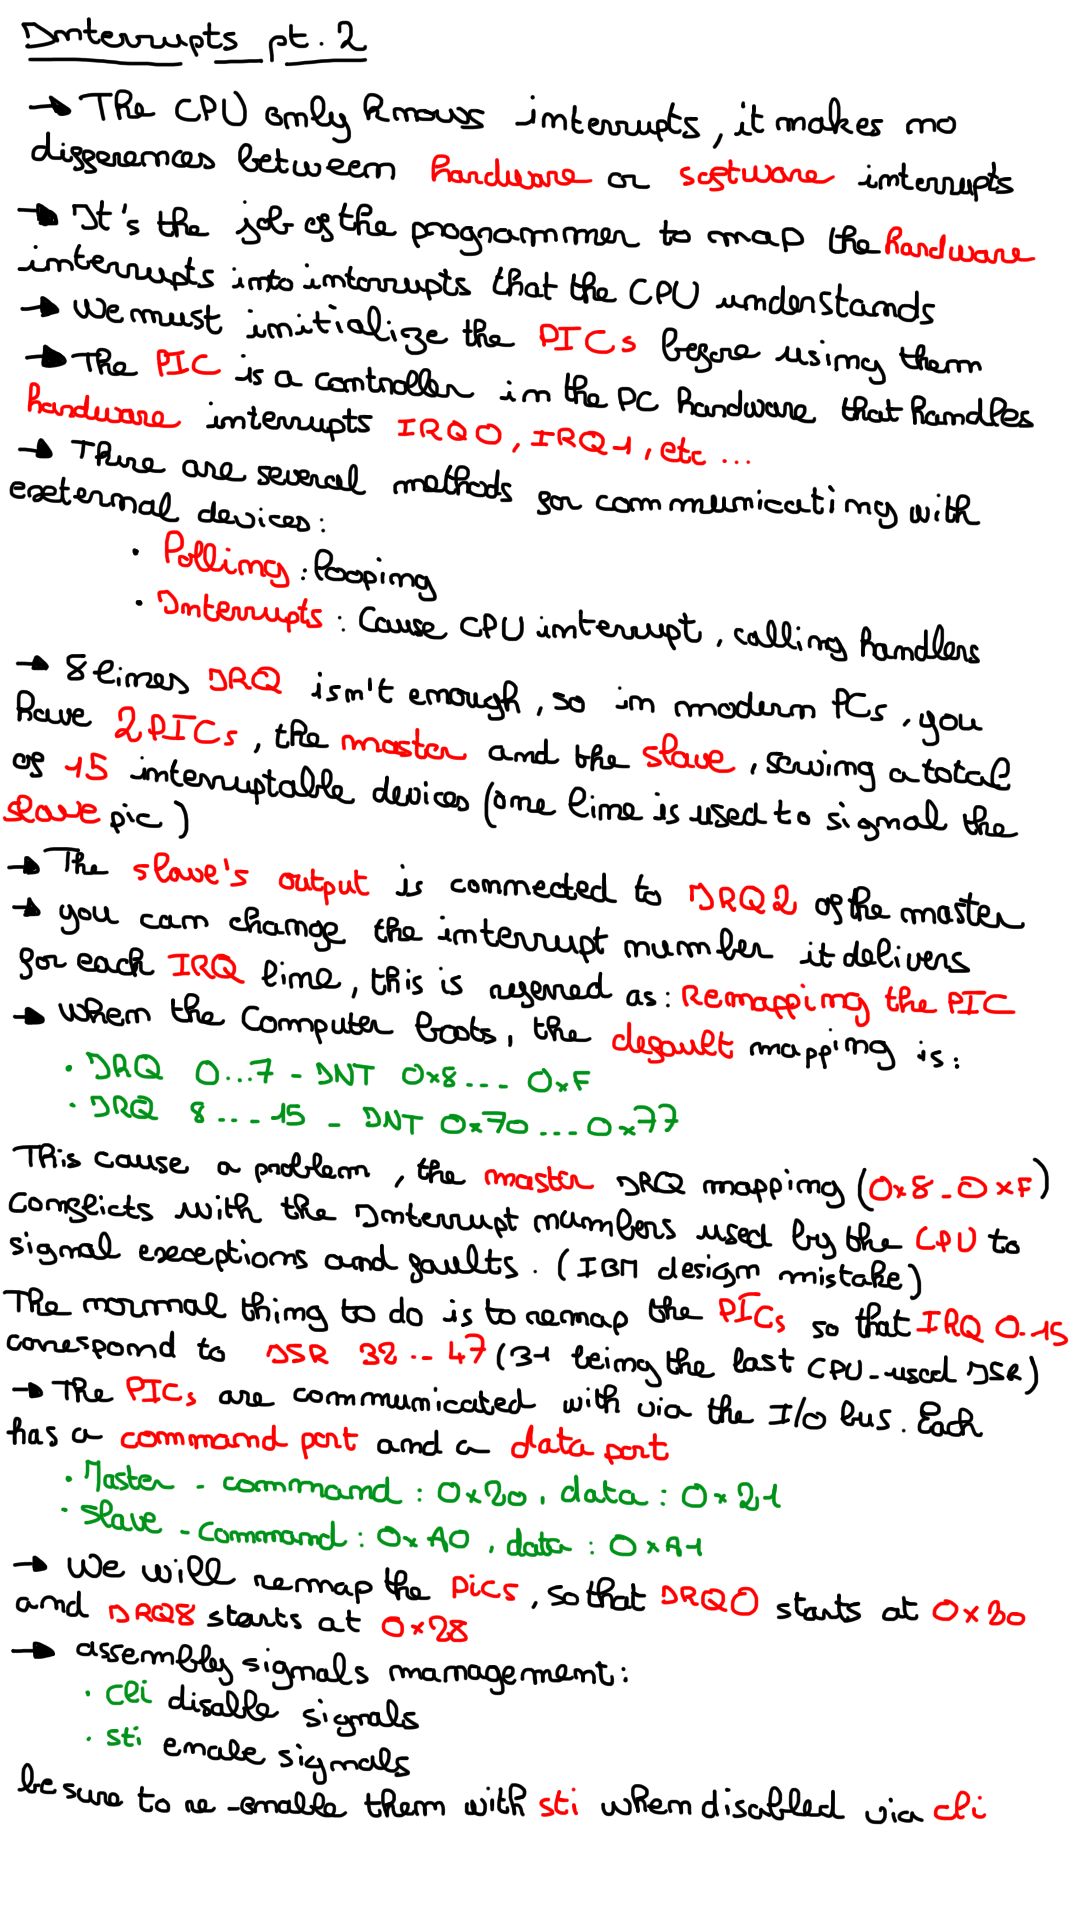 Interrupts pt. 2
→ The CPU only knows interrupts, it makes no
differences between hardware or software interrupts
→ It's the job of the programmer to map the hardware
interrupts into interrupts that the CPU understands
→ We must initialize the PICs before using them
→ The PIC is a controller in the PC hardware that handles
hardware interrupts IRQ0, IRQ1, etc ...
→ There are several methods for communicating with
external devices:
• Polling: Looping
• Interrupts: Cause CPU interrupt, calling handlers
→ 8 lines IRQ isn't enough, so in modern PCs, you
have 2 PICs, the master and the slave, serving a total
of 15 interruptable devices (one line is used to signal the
slave pic)
→ The slave's output is connected to IRQ2 of the master
→ you can change the interrupt number it delivers
for each IRQ line, this is referred as: Remapping the PIC
→ when the Computer boots, the default mapping is:
• IRQ 0...7 - INT 0x8... 0xF
• IRQ 8...15 - INT 0x70...0x77
This cause a problem, the master IRQ mapping (0x8-0xF)
conflicts with the Interrupt numbers used by the CPU to
signal exceptions and faults. (IBM design mistake)
The normal thing to do is to remap the PICs so that IRQ 0..15
correspond to ISR 32..47 (31 being the last CPU-used ISR)
→ The PICs are communicated with via the I/O bus. Each
has a command port and a data port
• Master - command: 0x20, data: 0x21
• Slave - command: 0xA0, data: 0xA1
→ We will remap the pics, so that IRQ0 starts at 0x20
and IRQ8 starts at 0x28
→ assembly signals management:
• cli disable signals
• sti enable signals
be sure to re-enable them with sti when disabled via cli